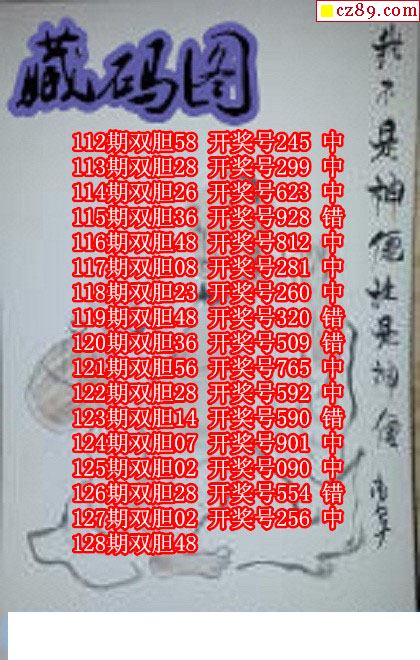 cz89.com
藏码图
112期双胆58 开奖号245 中
113期双胆28 开奖号299 中
114期双胆26 开奖号623 中
115期双胆36 开奖号928 错
116期双胆48 开奖号812 中
117期双胆08 开奖号281 中
118期双胆23 开奖号260 中
119期双胆48 开奖号320 错
120期双胆36 开奖号509 错
121期双胆56 开奖号765 中
122期双胆28 开奖号592 中
123期双胆14 开奖号590 错
124期双胆07 开奖号901 中
125期双胆02 开奖号090 中
126期双胆28 开奖号554 错
127期双胆02 开奖号256 中
128期双胆48
我不是神但是神